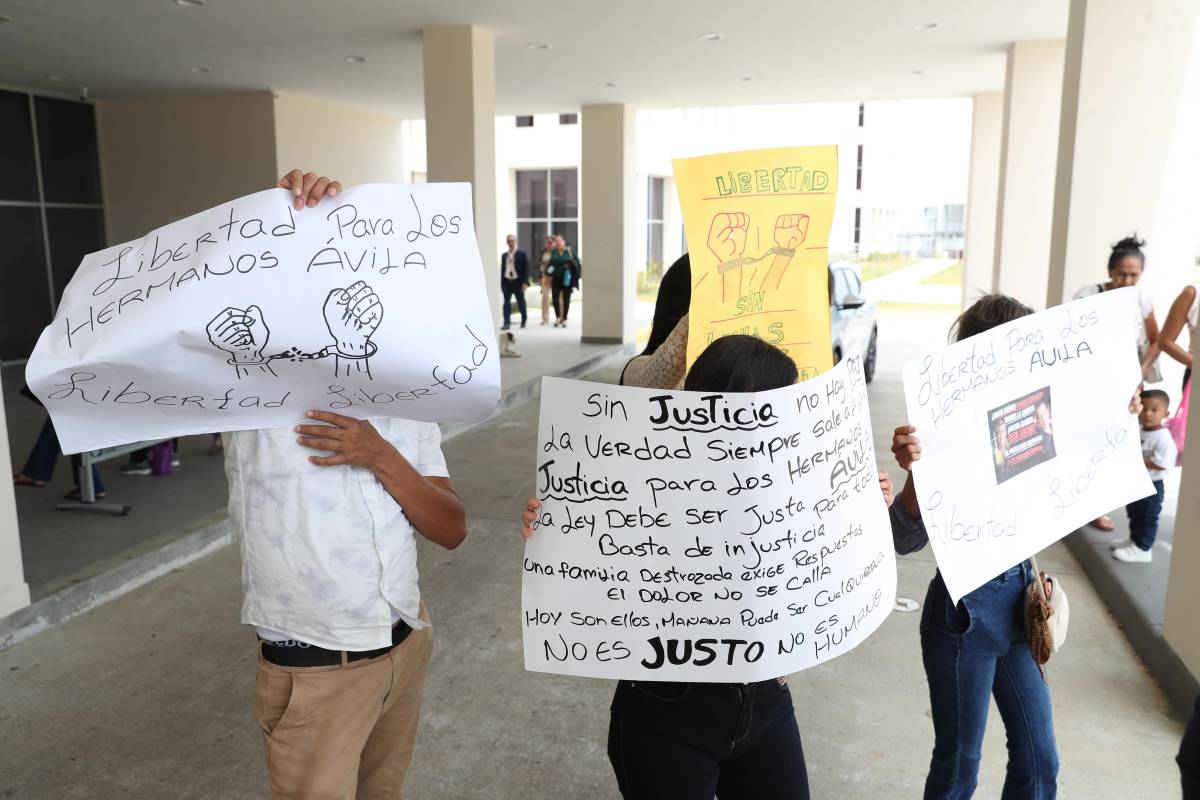 Libertad Para Los
HERMANOS ÁVILA
Libertad Libertad
LIBERTAD
SIN
Sin JUSTICIA no Hay Paz
La VERDAD SIEMPRE Sale a
Justicia para Los HERMANOS AVILA
La LEY DEBE SER Justa para todos
Basta de injusticia
una familia Destrozada exige Respuestas
El Dolor No se Calla
Hoy Son Ellos, Mañana Puede Ser Cualquiera
No es JUSTO no es HUMANO
Libertad Para Los
HERMANOS AVILA
Libertad Libertad